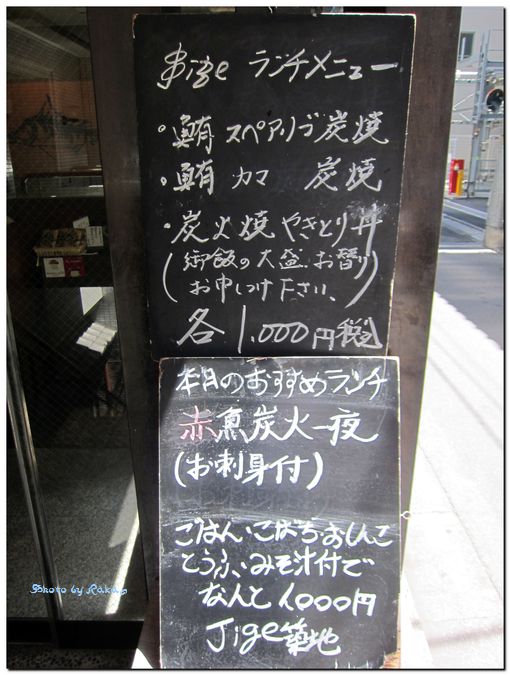 Jige ランチメニュー
・鮪 スペアリブ 炭焼
・鮪 カマ 炭焼
・炭火焼 やきとり丼
(御飯の大盛.お替り
お申しつけ下さい、)
各 1,000円税込
本日のおすすめランチ
赤魚炭火一夜
(お刺身付)
ごはん・こばち・おしんこ
とうふ・みそ汁付で
なんと 1,000円
Jige築地
Photo by Raku_